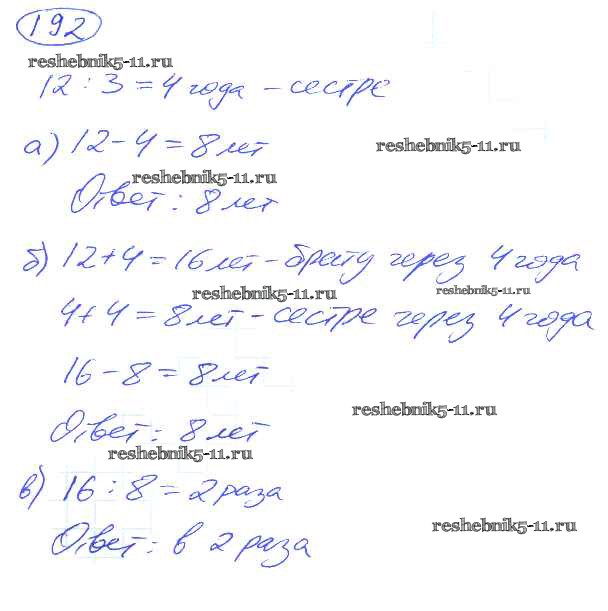 192
reshebnik5-11.ru
12 : 3 = 4 года - сестре
а) 12 - 4 = 8 лет
reshebnik5-11.ru
reshebnik5-11.ru
Ответ : 8 лет
б) 12 + 4 = 16 лет - брату через 4 года
reshebnik5-11.ru
reshebnik5-11.ru
4 + 4 = 8 лет - сестре через 4 года
16 - 8 = 8 лет
reshebnik5-11.ru
Ответ : 8 лет
reshebnik5-11.ru
в) 16 : 8 = 2 раза
reshebnik5-11.ru
Ответ : в 2 раза